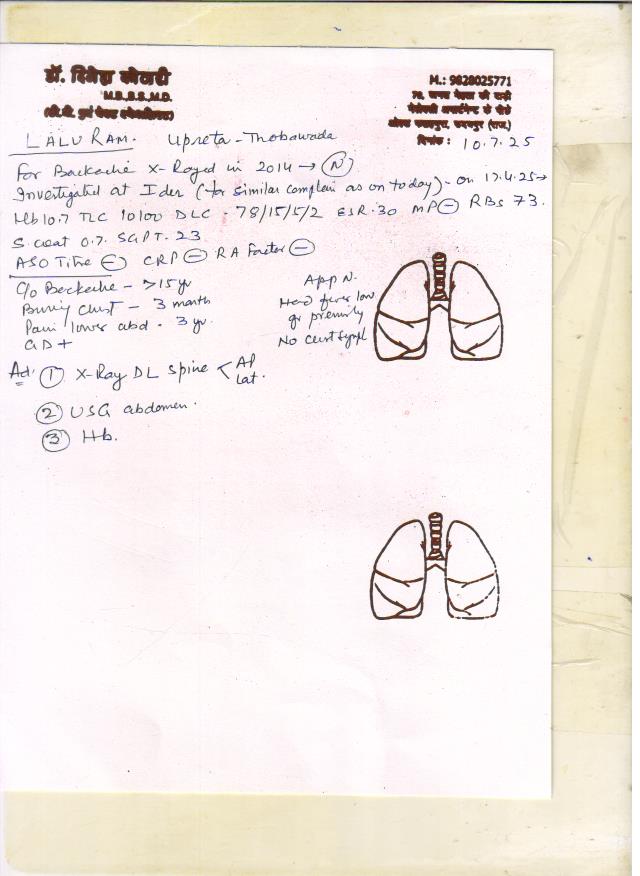 डॉ. दिनेश कोठारी
M.B.,B.S.,M.D.
M.: 9828025771
दिनांक : 10.7.25
LALU RAM. Upreta - Thobawada
For Backache X-Rayed in 2014 → (N)
Investigated at Ider (for similar complain as on today) - on 17.4.25 →
Hb 10.7 TLC 10100 DLC - 78/15/5/2 ESR. 30 MP ⊖ RBS 73.
S. creat 0.7. SGPT. 23
ASO Titre ⊖ CRP ⊖ RA Factor ⊖
C/o Backache - >15 yr
Burning chest - 3 month
Pain lower abd - 3 yr.
GD +
App N.
No chest sympt
Ad: ① X-Ray DL Spine < AP
Lat.
② USG abdomen.
③ Hb.